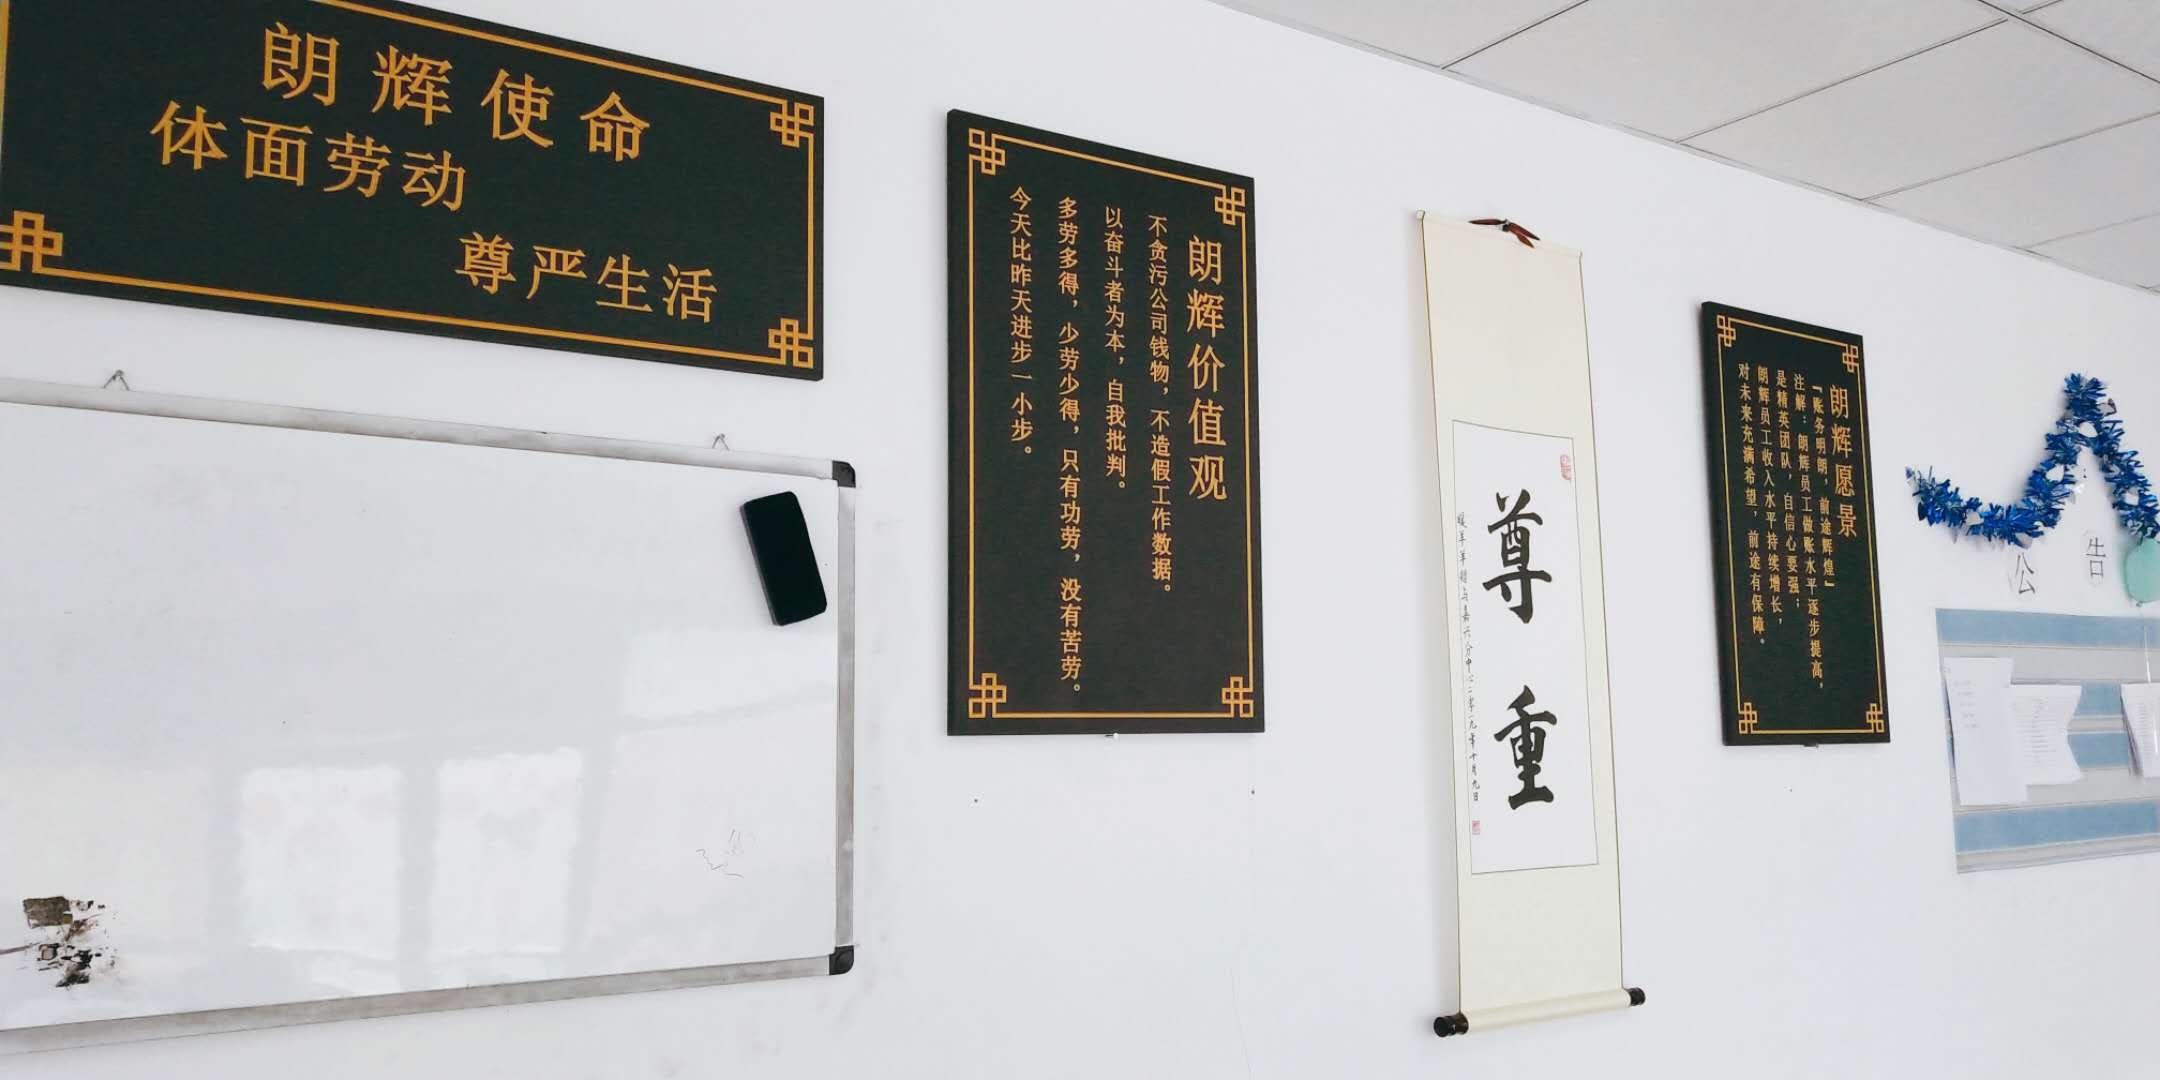 朗辉使命
体面劳动
尊严生活
朗辉价值观
不贪污公司钱物，不造假工作数据。
以奋斗者为本，自我批判。
多劳多得，少劳少得，只有功劳，没有苦劳。
今天比昨天进步一小步。
尊重
朗辉愿景
『账务明朗，前途辉煌』
注解：朗辉员工做账水平逐步提高，
是精英团队，自信心要强；
朗辉员工收入水平持续增长，
对未来充满希望，前途有保障。
公告